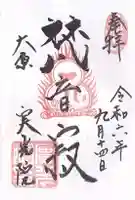 奉拝
令和六年九月十四日
梵音寂
大原
実光院